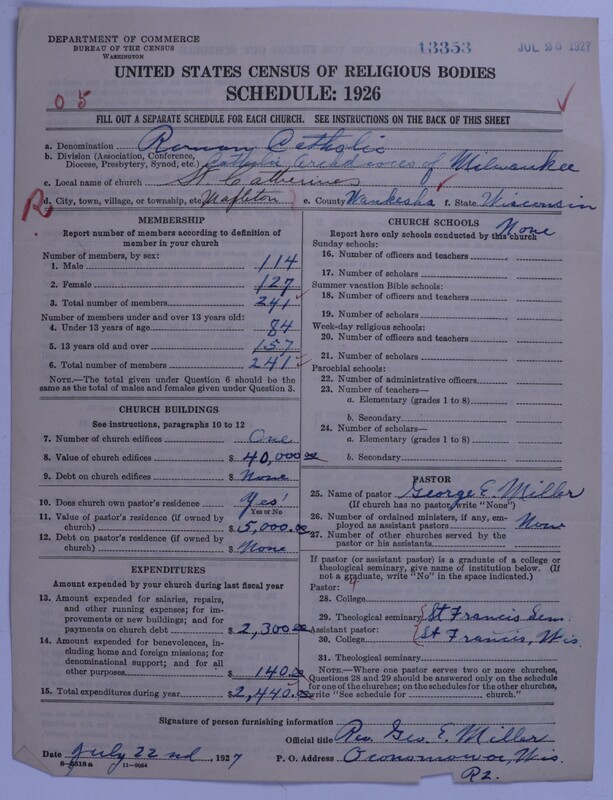 DEPARTMENT OF COMMERCE
BUREAU OF THE CENSUS
WASHINGTON
13353
JUL 25 1927
UNITED STATES CENSUS OF RELIGIOUS BODIES
SCHEDULE: 1926
0 5
FILL OUT A SEPARATE SCHEDULE FOR EACH CHURCH. SEE INSTRUCTIONS ON THE BACK OF THIS SHEET
a. Denomination Roman Catholic
b. Division (Association, Conference, Diocese, Presbytery, Synod, etc.) Catholic Archdioces of Milwaukee
c. Local name of church St. Catherines
R
d. City, town, village, or township, etc. Mapleton e. County Waukesha f. State Wisconsin
MEMBERSHIP
Report number of members according to definition of
member in your church
Number of members, by sex:
1. Male 114
2. Female 127
3. Total number of members 241
Number of members under and over 13 years old:
4. Under 13 years of age 84
5. 13 years old and over 157
6. Total number of members 241
NOTE.—The total given under Question 6 should be
the same as the total of males and females given under Question 3.
CHURCH BUILDINGS
See instructions, paragraphs 10 to 12
7. Number of church edifices One
8. Value of church edifices $ 40,000.00
9. Debt on church edifices $ None
10. Does church own pastor's residence Yes
Yes or No
11. Value of pastor's residence (if owned by
church) $ 5,000.00
12. Debt on pastor's residence (if owned by
church) $ None
EXPENDITURES
Amount expended by your church during last fiscal year
13. Amount expended for salaries, repairs,
and other running expenses; for im-
provements or new buildings; and for
payments on church debt $ 2,300.00
14. Amount expended for benevolences, in-
cluding home and foreign missions; for
denominational support; and for all
other purposes $ 140.00
15. Total expenditures during year $ 2,440.00
CHURCH SCHOOLS None
Report here only schools conducted by this church
Sunday schools:
16. Number of officers and teachers
17. Number of scholars
Summer vacation Bible schools:
18. Number of officers and teachers
19. Number of scholars
Week-day religious schools:
20. Number of officers and teachers
21. Number of scholars
Parochial schools:
22. Number of administrative officers
23. Number of teachers—
a. Elementary (grades 1 to 8)
b. Secondary
24. Number of scholars—
a. Elementary (grades 1 to 8)
b. Secondary
PASTOR
25. Name of pastor George E. Miller
(If church has no pastor, write "None")
26. Number of ordained ministers, if any, em-
ployed as assistant pastors None
27. Number of other churches served by the
pastor or his assistants
If pastor (or assistant pastor) is a graduate of a college or
theological seminary, give name of institution below. (If
not a graduate, write "No" in the space indicated.)
Pastor:
28. College
29. Theological seminary St Francis Sem.
Assistant pastor:
30. College St Francis, Wis.
31. Theological seminary
NOTE.—Where one pastor serves two or more churches,
Questions 28 and 29 should be answered only on the schedule
for one of the churches; on the schedules for the other churches,
write "See schedule for church."
Signature of person furnishing information
Official title Rev. Geo. E. Miller
Date July 22 nd, 1927 P. O. Address Oconomowoc, Wis.
8-5518a 11-9054
R2.